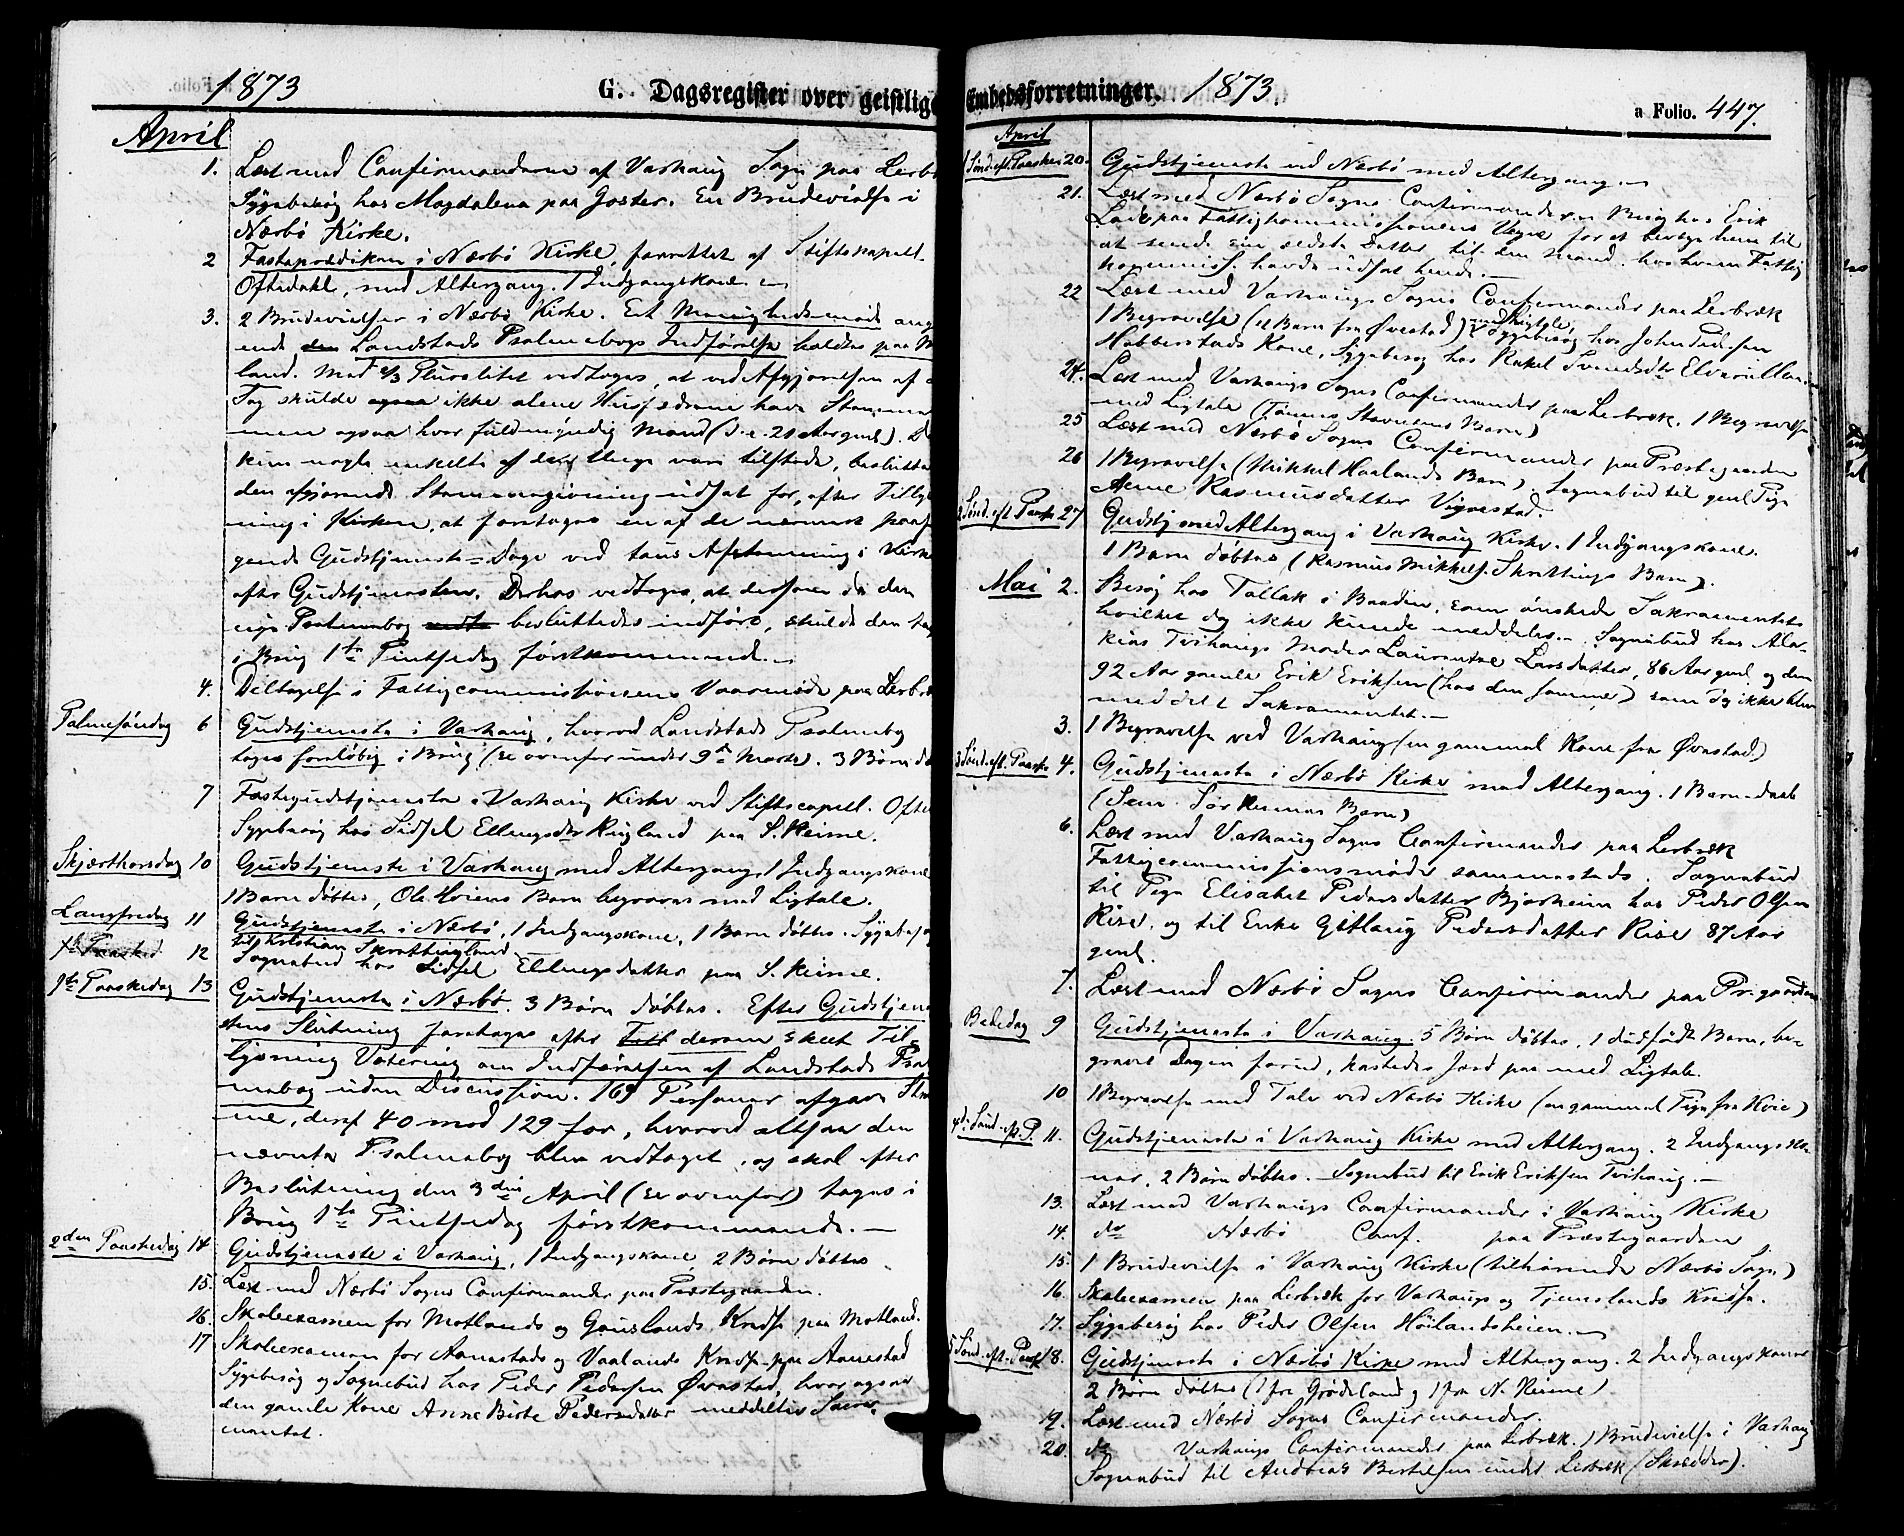 1873
G. Dagsregister over geistlige
April
1. Læst med Confirmanderne af Varhaug Sogn paa Lerbr
Sygebesøg hos Magdalena paa Goster. En Brudevielse i
Nærbø Kirke.
2 Fasteprædiken i Nærbø Kirke, forrettet af Stiftskapell.
Oftedahl, med Altergang. 1 Indgangskone.
3. 2 Brudevielser i Nærbø Kirke. Et Menighedsmøde ang
ende Landstads Psalmebogs Indførelse holdtes paa
land. Med 2/3 Pluralitet vedtoges, at ved Afgjørelsen af
Tog skulde ikke alene Husfædrene have Stemme
men ogsaa hver fuldmyndig Mand (d. e. 21 Aar gml.). D
kun nogle enkelte af deslige vare tilstede, besluttedes
den afgjørende Stemmegivning udsat for, efter Tillys
ning i Kirken, at foretages en af de nærmest paaføl
gende Gudstjeneste-Dage ved taus Afstemning i Kirken
efter Gudstjenesten. Derhos vedtoges, at dersom da den
nye Psalmebog besluttedes indført, skulde den tages
i Brug 1ste Pintsedag førstkommende.
4. Deltagelse i Fattigcommissionens Vaarmøde paa Lerbr
Palmesøndag 6 Gudstjeneste i Varhaug, hvorved Landstads Psalmebog
toges foreløbig i Brug (se ovenfor under 9de Marts). 3 Børn dø
7 Fastegudstjeneste i Varhaug Kirke ved Stiftscapell. Ofte
Sygebesøg hos Sidsel Ellingsdtr Ringland paa S. Reime.
Skjærthorsdag 10 Gudstjeneste i Varhaug med Altergang, 1 Indgangskone
1 Barn døbtes, Ole Hviens Barn begraves med Ligtale.
Langfredag 11 Gudstjeneste i Nærbø, 1 Indgangskone, 1 Barn døbtes. Sygebesøg
til Kristian Skrettingland
12 Sognebud hos Sidsel Ellingsdatter paa S. Reime.
1ste Paaskedag 13 Gudstjeneste i Nærbø. 3 Børn døbtes. Efter Gudstjene
stens Slutning foretoges efter derom skeet Til
lysning Votering om Indførelsen af Landstads Psal
mebog uden Discussion. 169 Personer afgave Stem
me, deraf 40 mod 129 for, hvorved altsaa den
nævnte Psalmebog blev vedtaget, og skal efter
Beslutning den 3die April (se ovenfor) tages i
Brug 1ste Pintsedag førstkommende.
2den Paaskedag 14 Gudstjeneste i Varhaug, 1 Indgangskone, 2 Børn døbtes
15. Læst med Nærbø Sogns Confirmander paa Præstegaarden.
16. Skoleexamen for Motlands og Gauslands Kreds paa Motland.
17 Skoleexamen for Aanestads og Vaalands Kreds paa Aanestad
Sygebesøg og Sognebud hos Peder Pedersen Øvrstad, hvor ogsaa
den gamle Kone Anne Birte Pedersdatter meddeltes Sacra
mentet.
Embedsforretninger. 1873
a Folio. 447.
April
1 Sønd. eft. Paaske 20. Gudstjeneste ved Nærbø med Altergang.
21. Læst med Nærbø Sogns Confirmander. Besøg hos Erik
Lode paa Fattigkommissionens Vegne for at bevæge ham til
at sende sin ældste Datter til den Mand, hos hvem Fattig
kommiss. havde udsat hende.
22 Læst med Varhaugs Sogns Confirmander paa Lerbræk
1 Begravelse (et Barn fra Øvrstad) med Ligtale, Sygebesøg hos John Pedersen
Hobberstads Kone, Sygebesøg hos Rakel Svendsdtr
24. Læst med Varhaugs Sogns Confirmander paa Lerbræk. 1 Begravelse
med Ligtale (Tønnes Stavnems Barn)
25 Læst med Nærbø Sogns Confirmander paa Præstegaarden
26 1 Begravelse (Mikkel Haalands Barn). Sognebud til gml. Pige
Anne Rasmusdatter Vigrestad.
2 Sønd. eft. Paaske 27 Gudstj. med Altergang i Varhaug Kirke. 1 Indgangskone.
1 Barn døbtes (Rasmus Mikkels. Skrettings Barn).
Mai 2. Besøg hos Tollak i Boudin, som ønskede Sakramentet
hvilket dog ikke kunde meddeles. Sognebud hos Mar-
kias Tvihaugs Moder Laurentse Larsdatter, 86 Aar gml. og den
92 Aar gamle Erik Eriksen (hos den samme) som dog ikke blev
meddelt Sakramentet.
3. 1 Begravelse ved Varhaug (en gammel Kone fra Øvrstad)
3 Sønd. eft. Paaske 4. Gudstjeneste i Nærbø Kirke med Altergang. 1 Barnedaab
(Sem. Sør Reimes Barn)
6. Læst med Varhaug Sogns Confirmander paa Lerbræk
Fattigcommissionsmøde sammesteds. Sognebud
til Pige Elisabet Pedersdatter Bjorheim hos Peder Olsen
Rise, og til Enke Gitlaug Pedersdatter Rise 87 Aar
gml.
7. Læst med Nærbø Sogns Confirmander paa Pr.gaarden
Bededag 9 Gudstjeneste i Varhaug. 5 Børn døbtes, 1 dødfødt Barn, be-
gravet Dagen forud, kastedes Jord paa med Ligtale.
10 1 Begravelse med Tale ved Nærbø Kirke (en gammel Pige fra Hvie)
4de Sønd. eft. P. 11. Gudstjeneste i Varhaug Kirke med Altergang. 2 Indgangsko-
ner, 2 Børn døbtes. Sognebud til Erik Eriksen Tvihaug.
13. Læst med Varhaugs Confirmander i Varhaug Kirke
14. do Nærbø Conf. paa Præstegaarden
15. 1 Brudevielse i Varhaug Kirke (tilhørende Nærbø Sogn)
16. Skoleexamen paa Lerbræk for Varhaugs og Tjemslands Kredse.
17. Sygebesøg hos Peder Olsen Høilandsheien.
5 Sønd. eft. Paask 18. Gudstjeneste i Nærbø Kirke med Altergang. 2 Indgangskoner
2 Børn døbtes (1 fra Grødeland og 1 fra N. Reime)
19. Læst med Nærbø Sogns Confirmander.
20. do Varhaugs Confirmander paa Lerbræk. 1 Brudevielse i Varhaug
Sognebud til Andreas Bertelsen under Lerbræk (Skrædder).